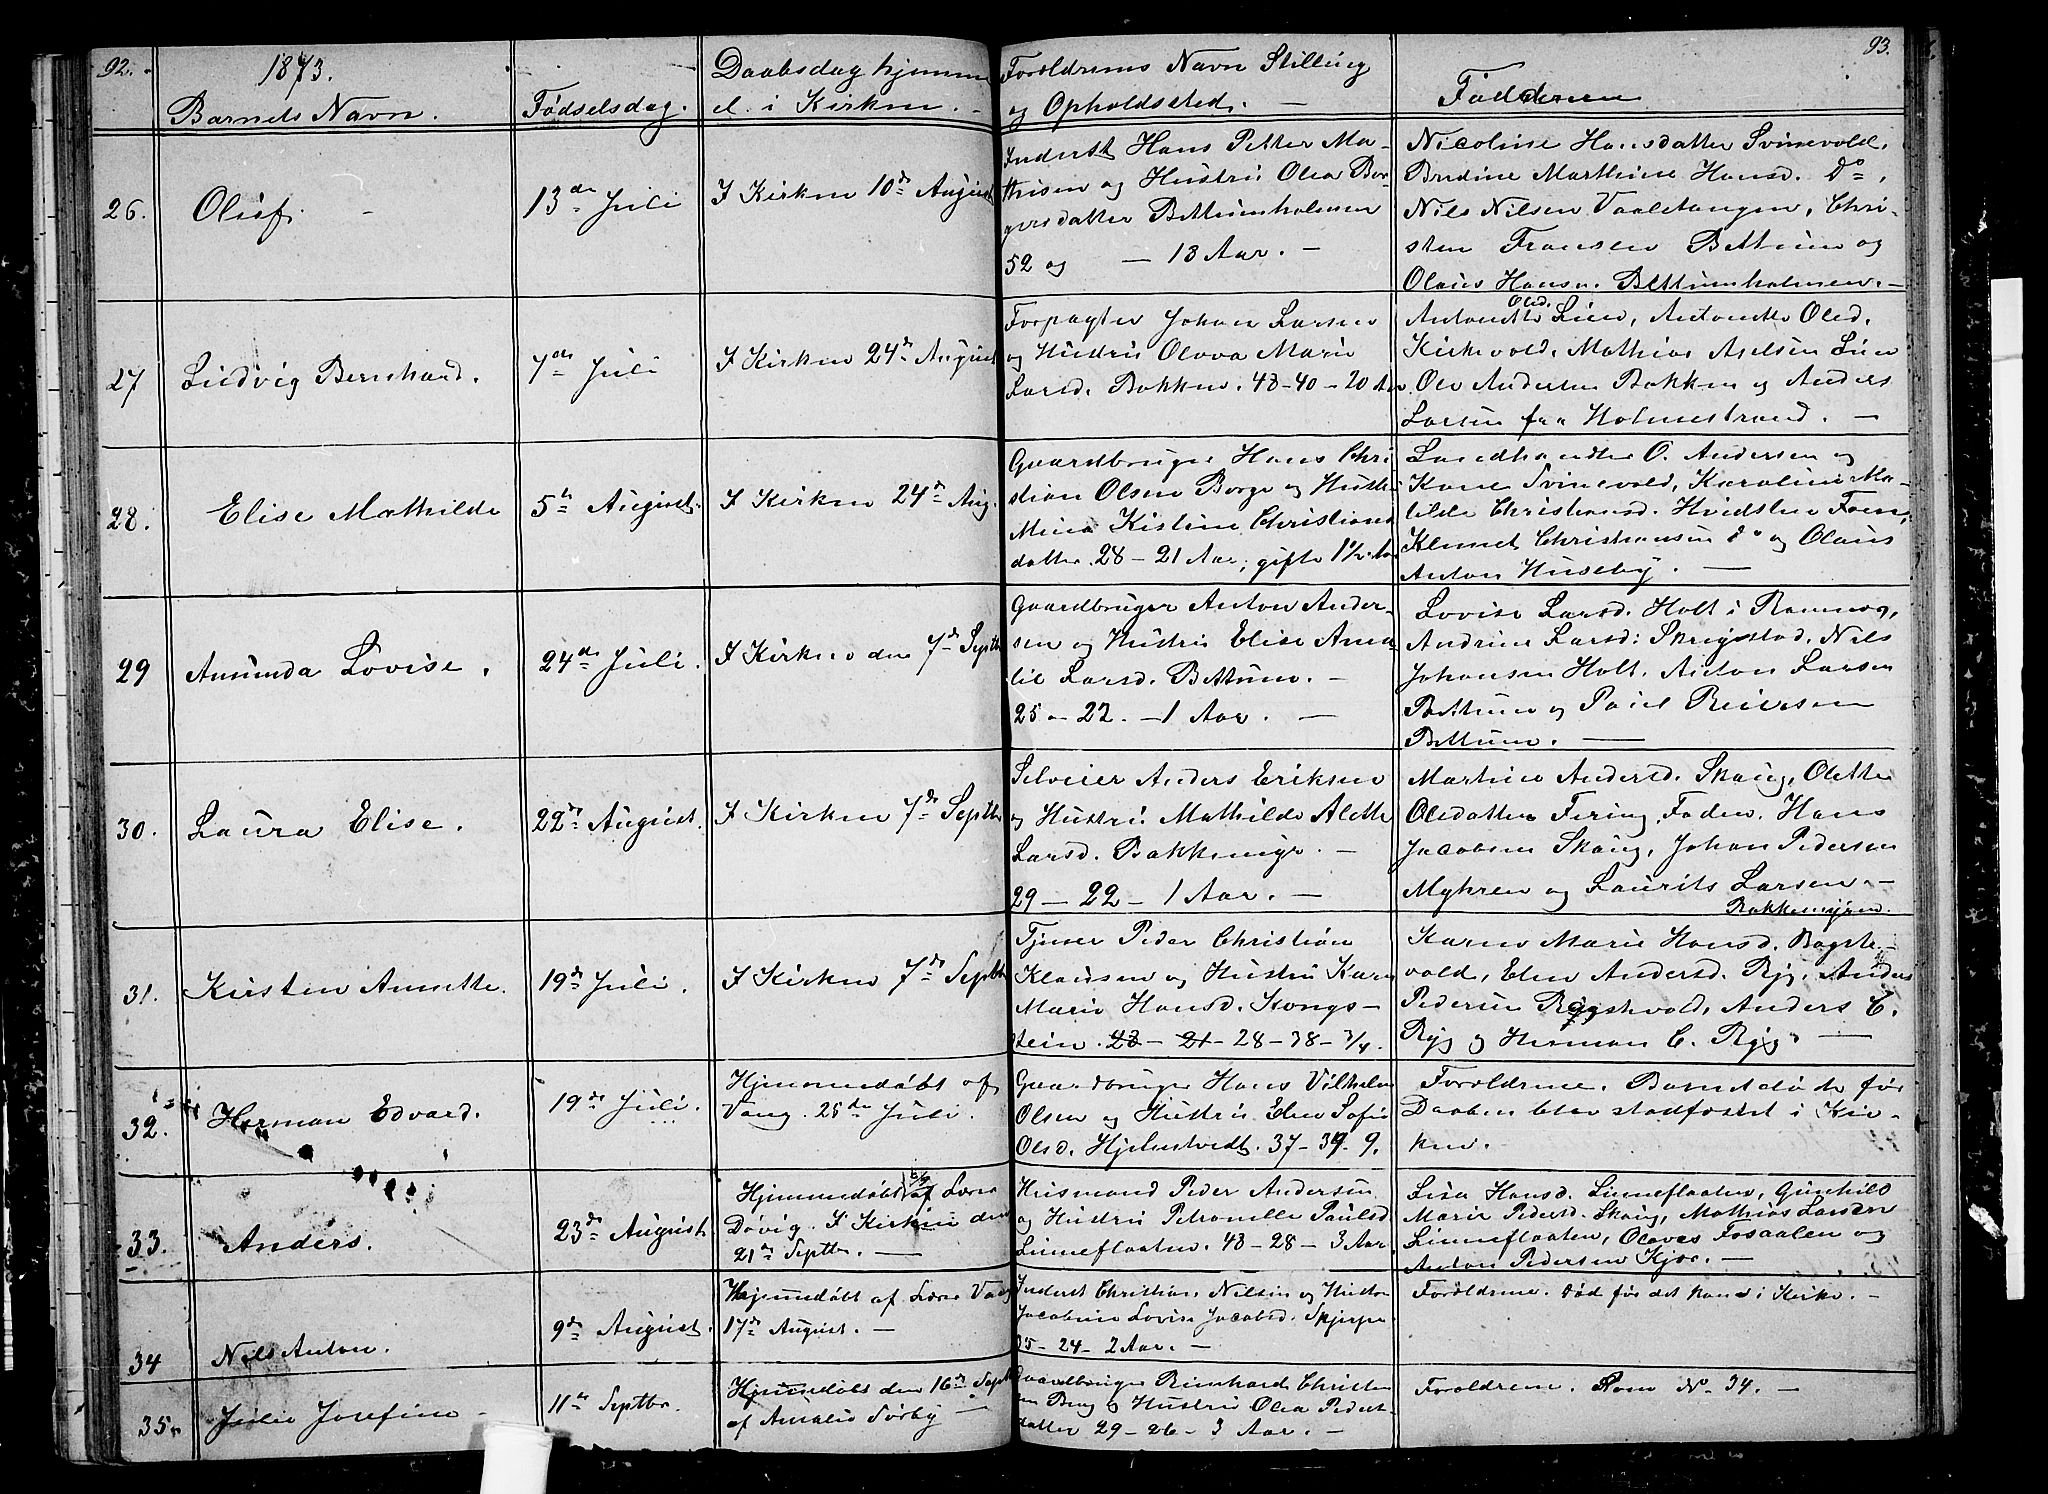 92.
1873.
Barnets Navn.
Fødselsdag.
Daabsdag hjemme
el. i Kirken. -
Forældrenes Navn Stilling
og Opholdssted. -
Fadderne
93.
26.
Oluf. -
13de Juli
I Kirken 10de August
Inderst Hans Petter Ma-
thisen og Hustru Olea Bor-
gersdatter Bettumholmen
52 og — 13 Aar. -
Nicoline Hansdatter Svinevold,
Bredine Marthine Hansd. do,
Nils Nilsen Vaaletangen, Chri-
sten Fransen Bettum og
Olaus Hansen Bettumholmen. -
27
Ludvig Bernhard.
7de Juli
I Kirken 24de August
Forpagter Johan Larsen
og Hustru Olava Marie
Larsd. Bakken. 43-40-20 Aar.
Antonette Olsd. Lien, Antonette Olsd.
Kirkevold, Mathias Axelsen Lien
Ole Andersen Bakken og Anders
Larsen fra Holmestrand. -
28.
Elise Mathilde
5te August.
I Kirken 24de Aug.
Gaardbruger Hans Chri
stian Olsen Borge og Hustru
Mina Kistine Christians
datter 28 - 21 Aar, gifte 1 1/2 Aar
Landhandler O. Andersen og
Kone Svinevold, Karoline Ma-
tilde Christiansd. Hvidsten Foen,
Klemet Christiansen do og Olaus
Anton Huseby. -
29
Amunda Lovise.
24de Juli.
I Kirken den 7de Septbr
Gaardbruger Anton Ander-
sen og Hustru Elise Ama
lie Larsd. Bettum. -
25 - 22. - 1 Aar. -
Lovise Larsd. Holt i Ramnæs,
Andrine Larsd: Skregstad, Nils
Johansen Holt, Anton Larsen
Bettum og Paul Reiersen
Bettum. -
30.
Laura Elise.
22de August.
I Kirken 7de Septbr
Selveier Anders Eriksen
og Hustru Mathilde Alette
Larsd. Bakkemyr. -
29 - 22 - 1 Aar. -
Martine Andersd. Skaug, Olette
Olsdatter Fering, Faden. Hans
Jacobsen Skaug, Johan Pedersen
Myhren og Laurits Larsen. -
Bakkemyren.
31.
Kirsten Annette.
19de Juli.
I Kirken 7de Septbr
Tjener Peder Christian
Klausen og Hustru Karen
Marie Hansd. Kongs-
tein. 23 - 21 - 28 - 38 - 3/4.
Karen Marie Hansd. Bogste-
vold, Elen Andersd. Ryg, Anders
Pedersen Bogstevold, Anders C.
Ryg og Herman C. Ryg. -
32.
Herman Edvard.
19de Juli.
Hjemmedøbt af
Vang. 25de Juli.
Gaardbruger Hans Vilhelm
Olsen og Hustru Elen Sofie
Olsd. Hjelmtvedt. 37 - 39 - 9.
Forældrene. Barnet døde før
Daaben blev stadfæstet i Kir-
ken.
33.
Anders.
23de August
Hjemmedøbt 6/9 af Lærer
Døvig. I Kirken den
21de Septbr. -
Husmand Peder Andersen
og Hustru Petronelle Paulsd
Linneflaaten. 43 - 28 - 3 Aar
Lisa Hansd. Linneflaaten, Gunhild
Marie Pedersd. Skaug, Mathias Larsen
Linneflaaten, Olaves Fosaalen og
Anton Pedersen Kjær. -
34
Nils Anton.
9de August.
Hjemmedøbt af Lærer Vang
17de August. -
Inderst Christian Nilsen og Hustru
Jacobine Lovise Jacobsd. Skjerpe
35 - 24 - 2 Aar. -
Forældrene. Død før det kom i Kirke. -
35.
Julie Josefine -
11te Septbr.
Hjemmedøbt den 16de Septbr
af Amalie Sørby -
Gaardbruger Reinhard Christen
sen Berg og Hustru Olea Peders-
datter 29 - 26 - 3 Aar. -
Forældrene. Som No. 34. -